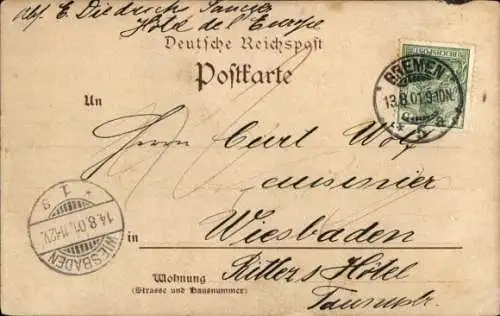 Abs. E. Diedrichs
Hôtel de l'Europe
Deutsche Reichspost
Postkarte
An
Herrn Curt Wolf
in Wiesbaden
Ritters Hôtel
Wohnung
(Strasse und Hausnummer)
Taunusstr.
REICHSPOST
BREMEN
13.8.01.9-10N.
WIESBADEN
14.8.01.11-12V.